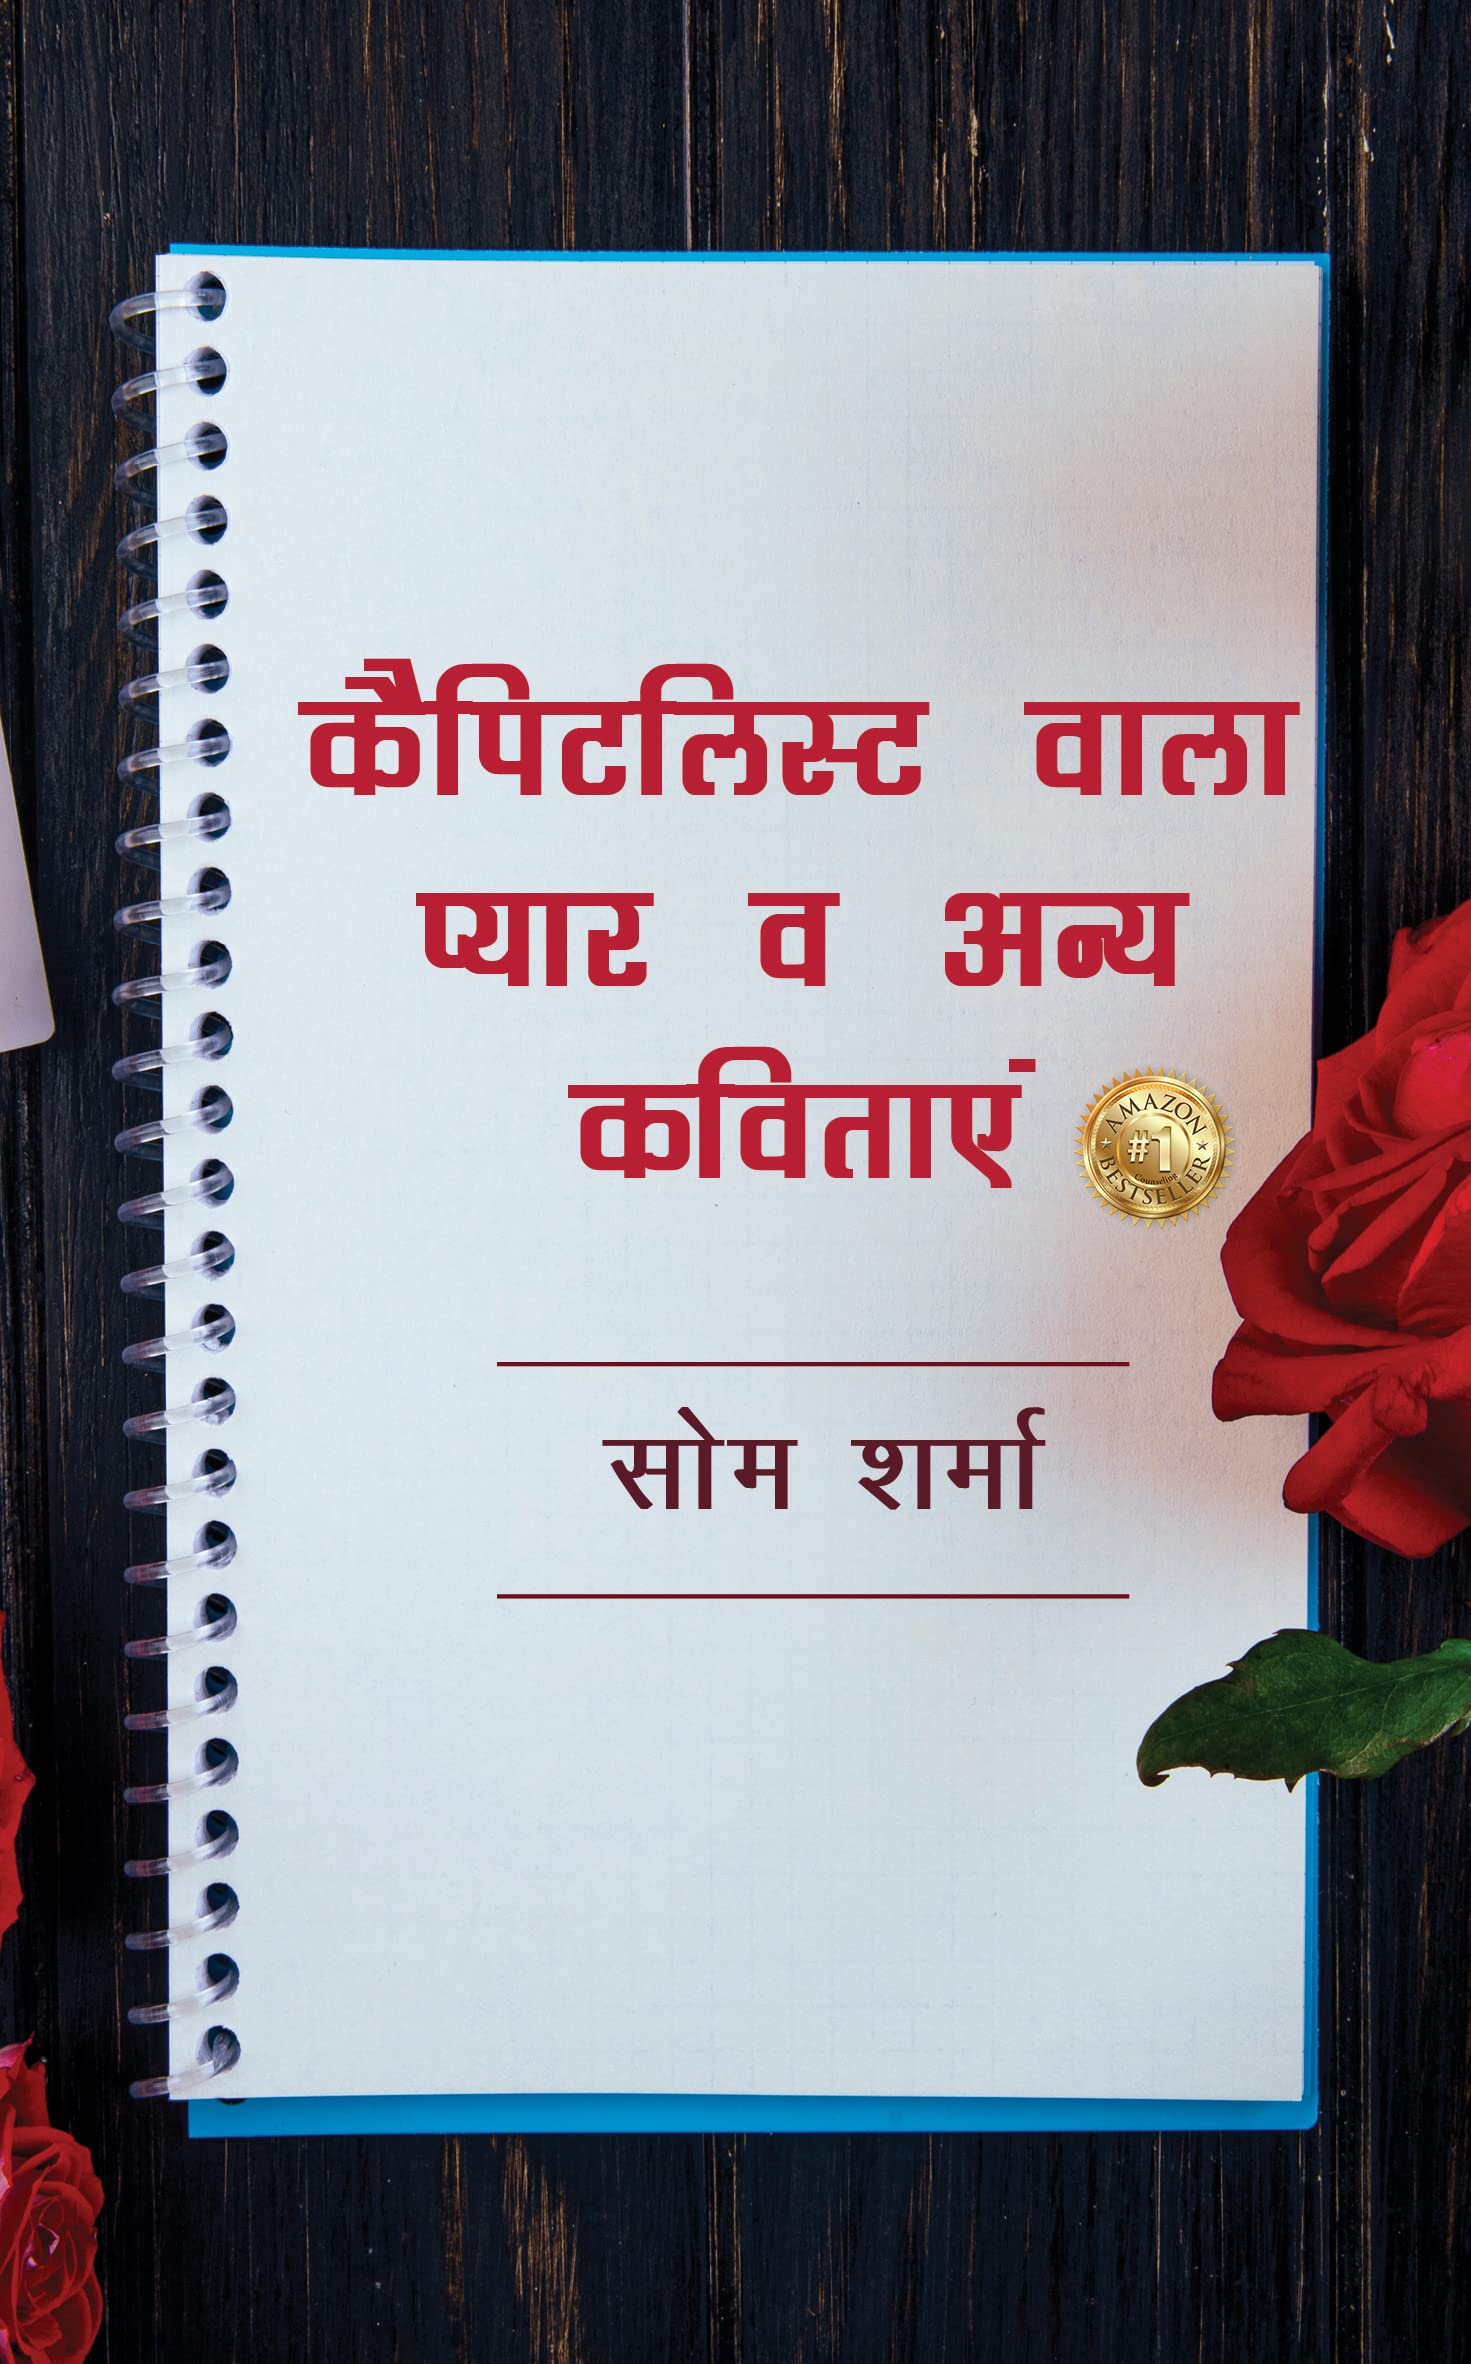 कैपिटलिस्ट वाला
प्यार व अन्य
कविताएं
AMAZON
#1
Counseling
BESTSELLER
सोम शर्मा